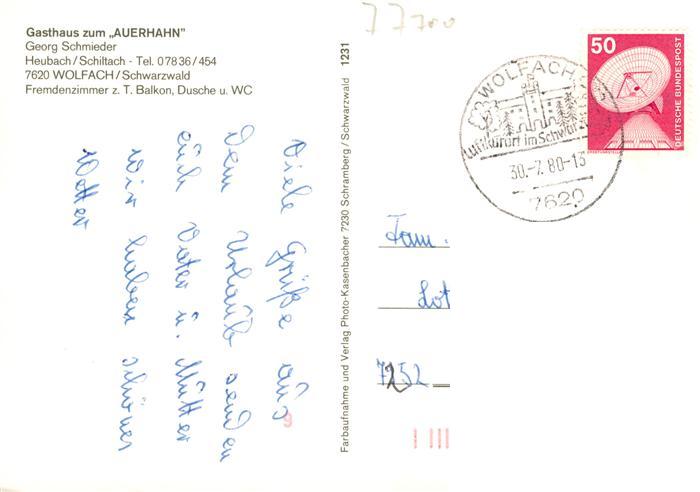 Gasthaus zum „AUERHAHN"
Georg Schmieder
Heubach/Schiltach - Tel. 07836/454
7620 WOLFACH/Schwarzwald
Fremdenzimmer z. T. Balkon, Dusche u. WC
Viele Grüße aus
dem Urlaub senden
euch Vater u. Mutter
Wir haben schönes
Wetter
Farbaufnahme und Verlag Photo-Kasenbacher 7230 Schramberg/Schwarzwald 1231
77700
WOLFACH
Luftkurort im Schwarzw
30.-7.80-13
7620
50
DEUTSCHE BUNDESPOST
Fam.
Lot
7252
9